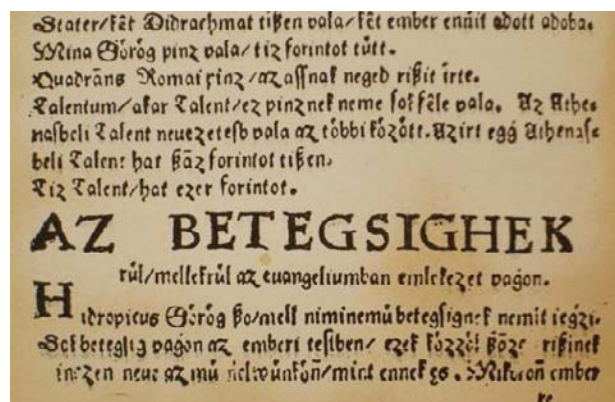 Stater/két Didrachmat tißen vala/két ember ennit adott adoba.
Mina Görög pinz vala/tiz forintot tütt.
Quadrãns Romai pinz/az assnak neged rißit irte.
Talentum/akar Talent/ez pinznek neme sokféle vala. Az Athe⸗
nasbeli Talent neuezetesb vala az többi között. Azirt egġ Athenasʒ
beli Talent hat ßāz forintot tißen.
Tiz Talent/hat ezer forintot.
AZ BETEGSIGHEK
rúl/mellekrúl az euangeliumban emlekezet vaġon.
Hidropicus Görög ßo/mell niminemú betegsignek nemit ieġzi.
Sok betegsig vaġon az emberi testben/ ezek közzöl ßāze rißinek
ninzen neue az mú nelwúnkön̄/mint ennek es. Mikoron̄ ember
re